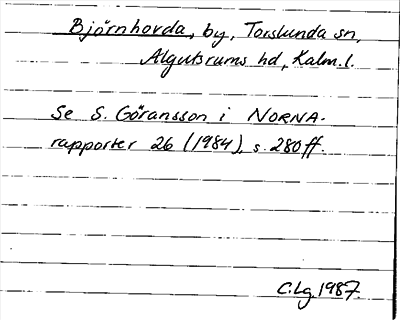 Björnhovda, by, Torslunda sn,
Algutsrums hd, Kalm. l.
Se S. Göransson i NORNA-
rapporter 26 (1984), s. 280 ff.
C.Lg. 1987.